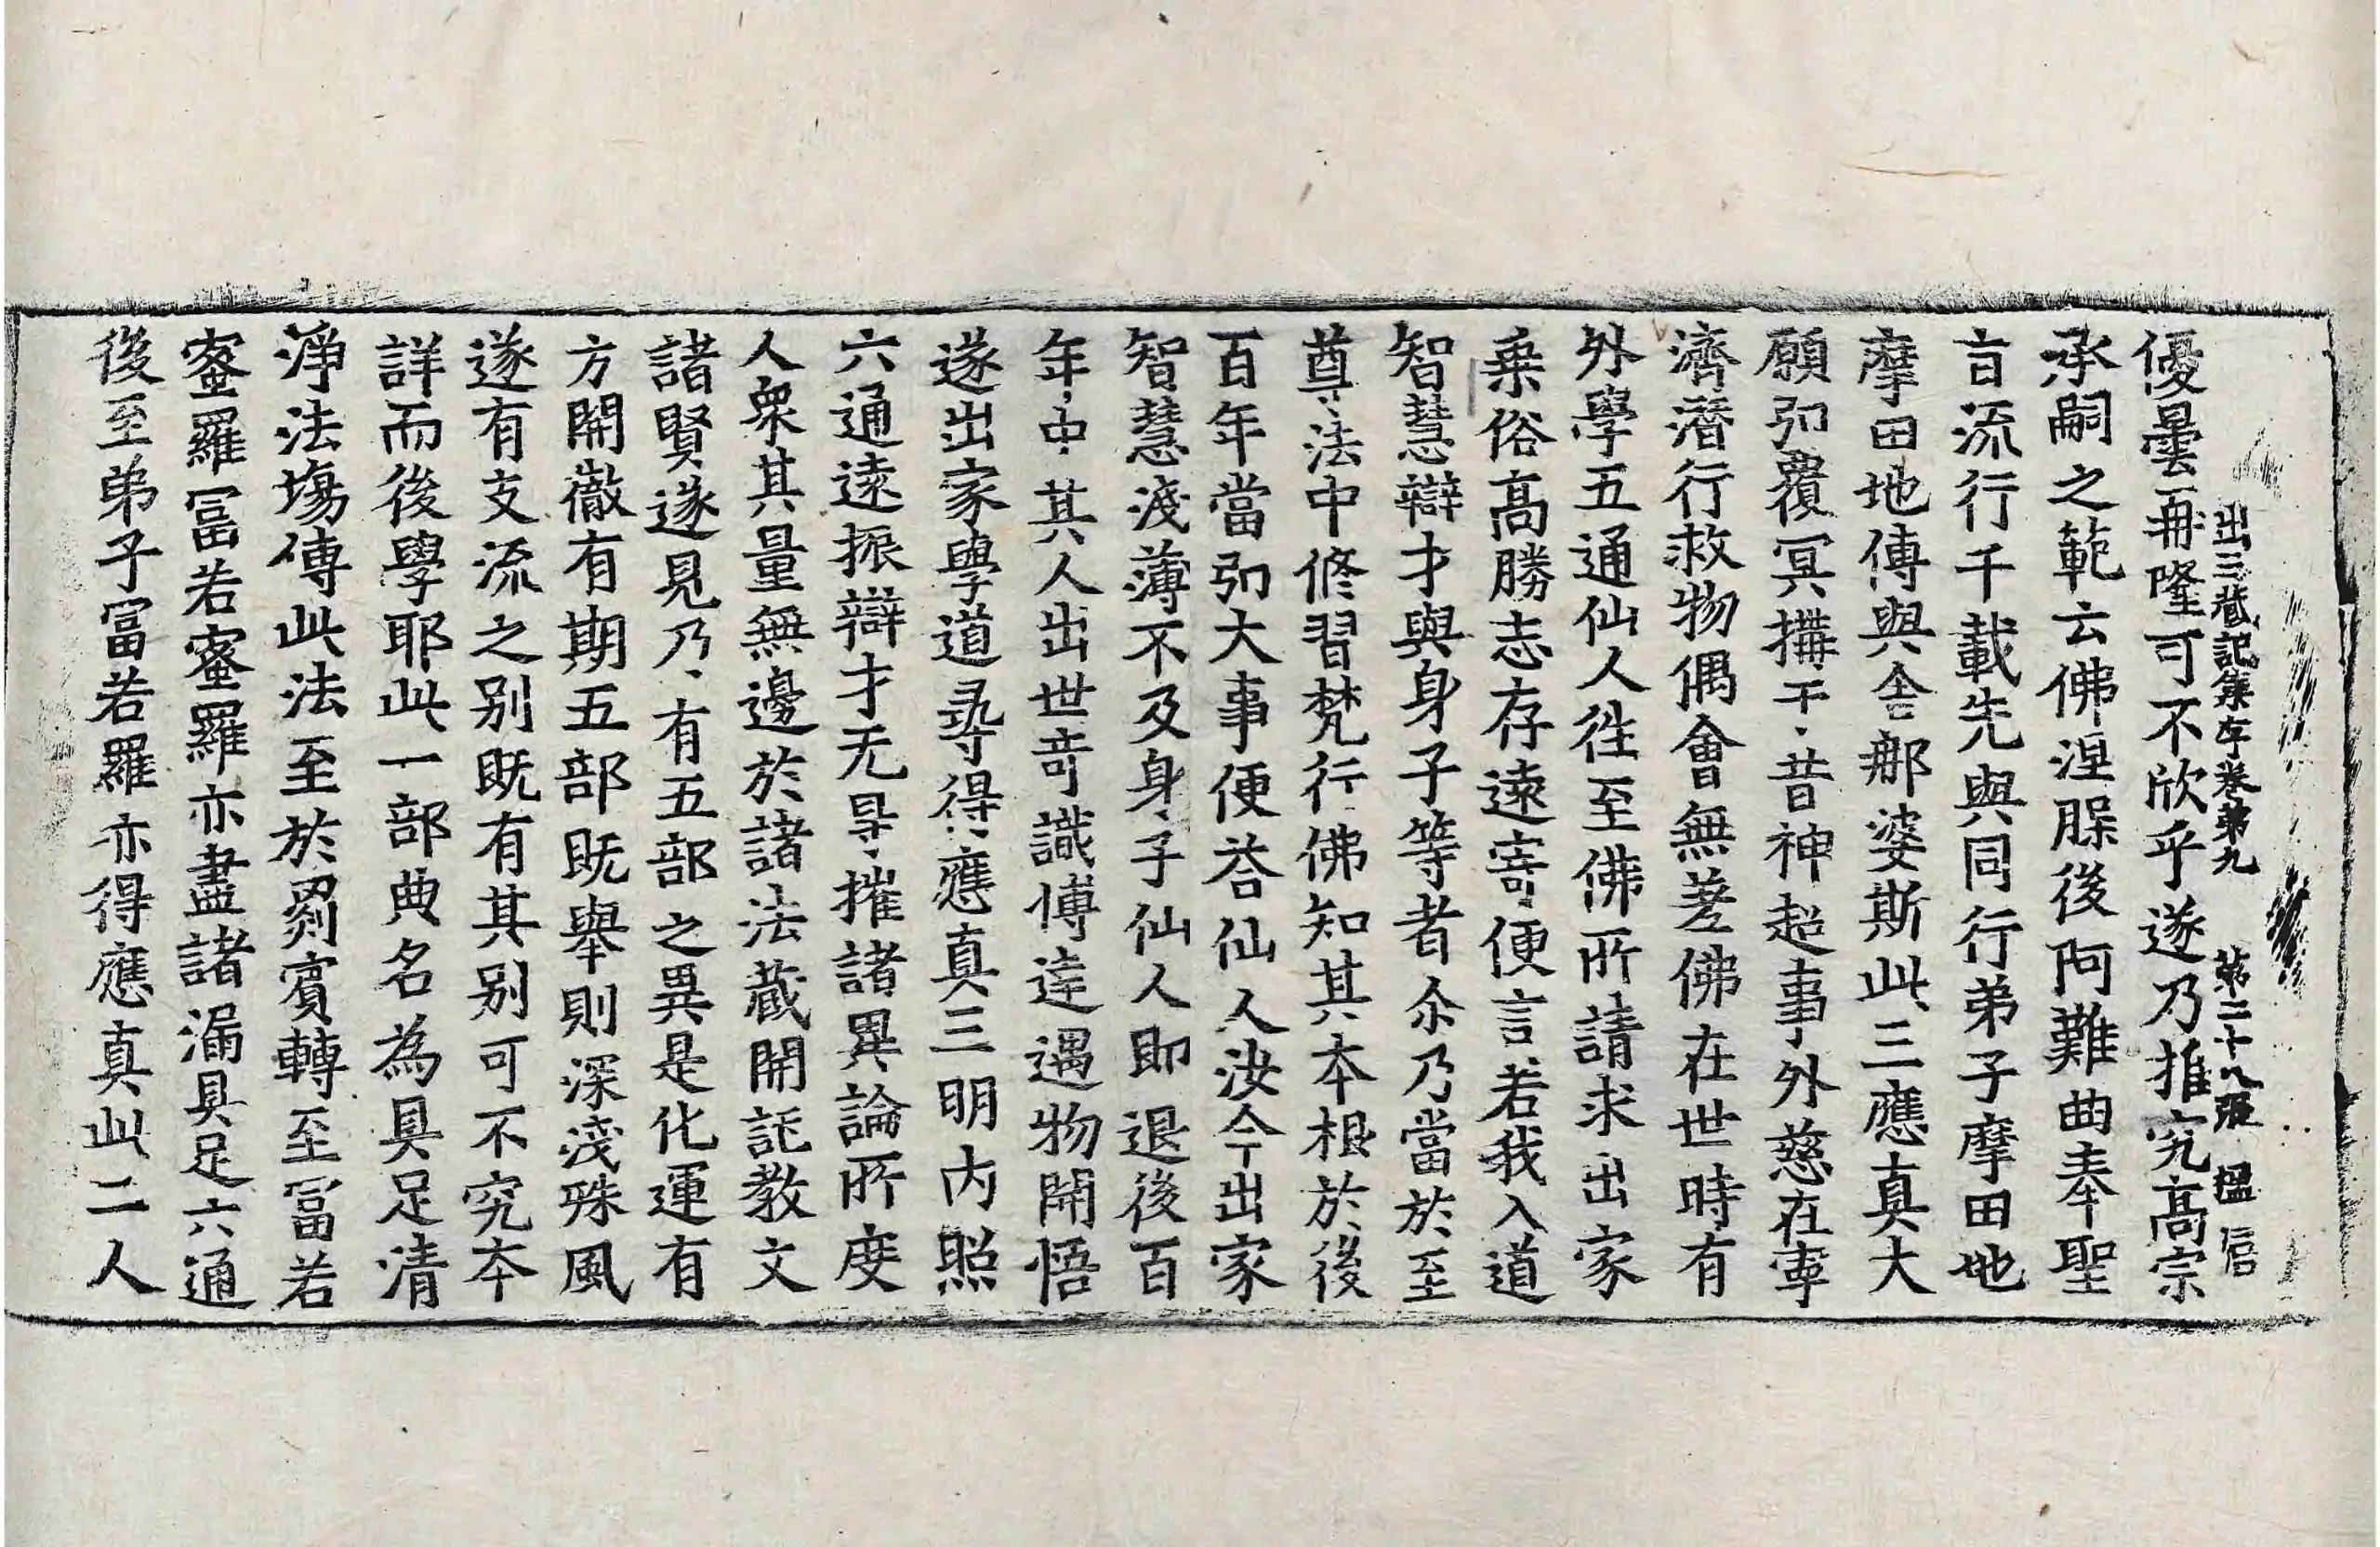 出三蔵記集序卷第九 第二十八張 榲 信
優曇再隆可不欣乎遂乃推究高宗
承嗣之範云佛涅槃後阿難曲奉聖
旨流行千載先與同行弟子摩田地
摩田地傳與舍那婆斯此三應真大
願弘覆冥搆于昔神超事外慈在寧
濟潜行救物偶會無差佛在世時有
外學五通仙人往至佛所請求出家
乗俗高勝志存遠寄便言若我入道
智慧辯才與身子等者尒乃當於至
尊法中修習梵行佛知其本根於後
百年當弘大事便荅仙人汝今出家
智慧淺薄不及身子仙人即退後百
年中其人出世竒識博達遇物開悟
遂出家學道尋得應真三明内照
六通遠振辯才无㝵摧諸異論所度
人衆其量無邊於諸法蔵開託教文
諸賢遂見乃有五部之異是化運有
方開徹有期五部既舉則深淺殊風
遂有支流之别既有其别可不究本
詳而後學耶此一部典名為具足清
淨法場傳此法至於罽賓轉至冨若
蜜羅冨若蜜羅亦盡諸漏具足六通
後至弟子冨若羅亦得應真此二人